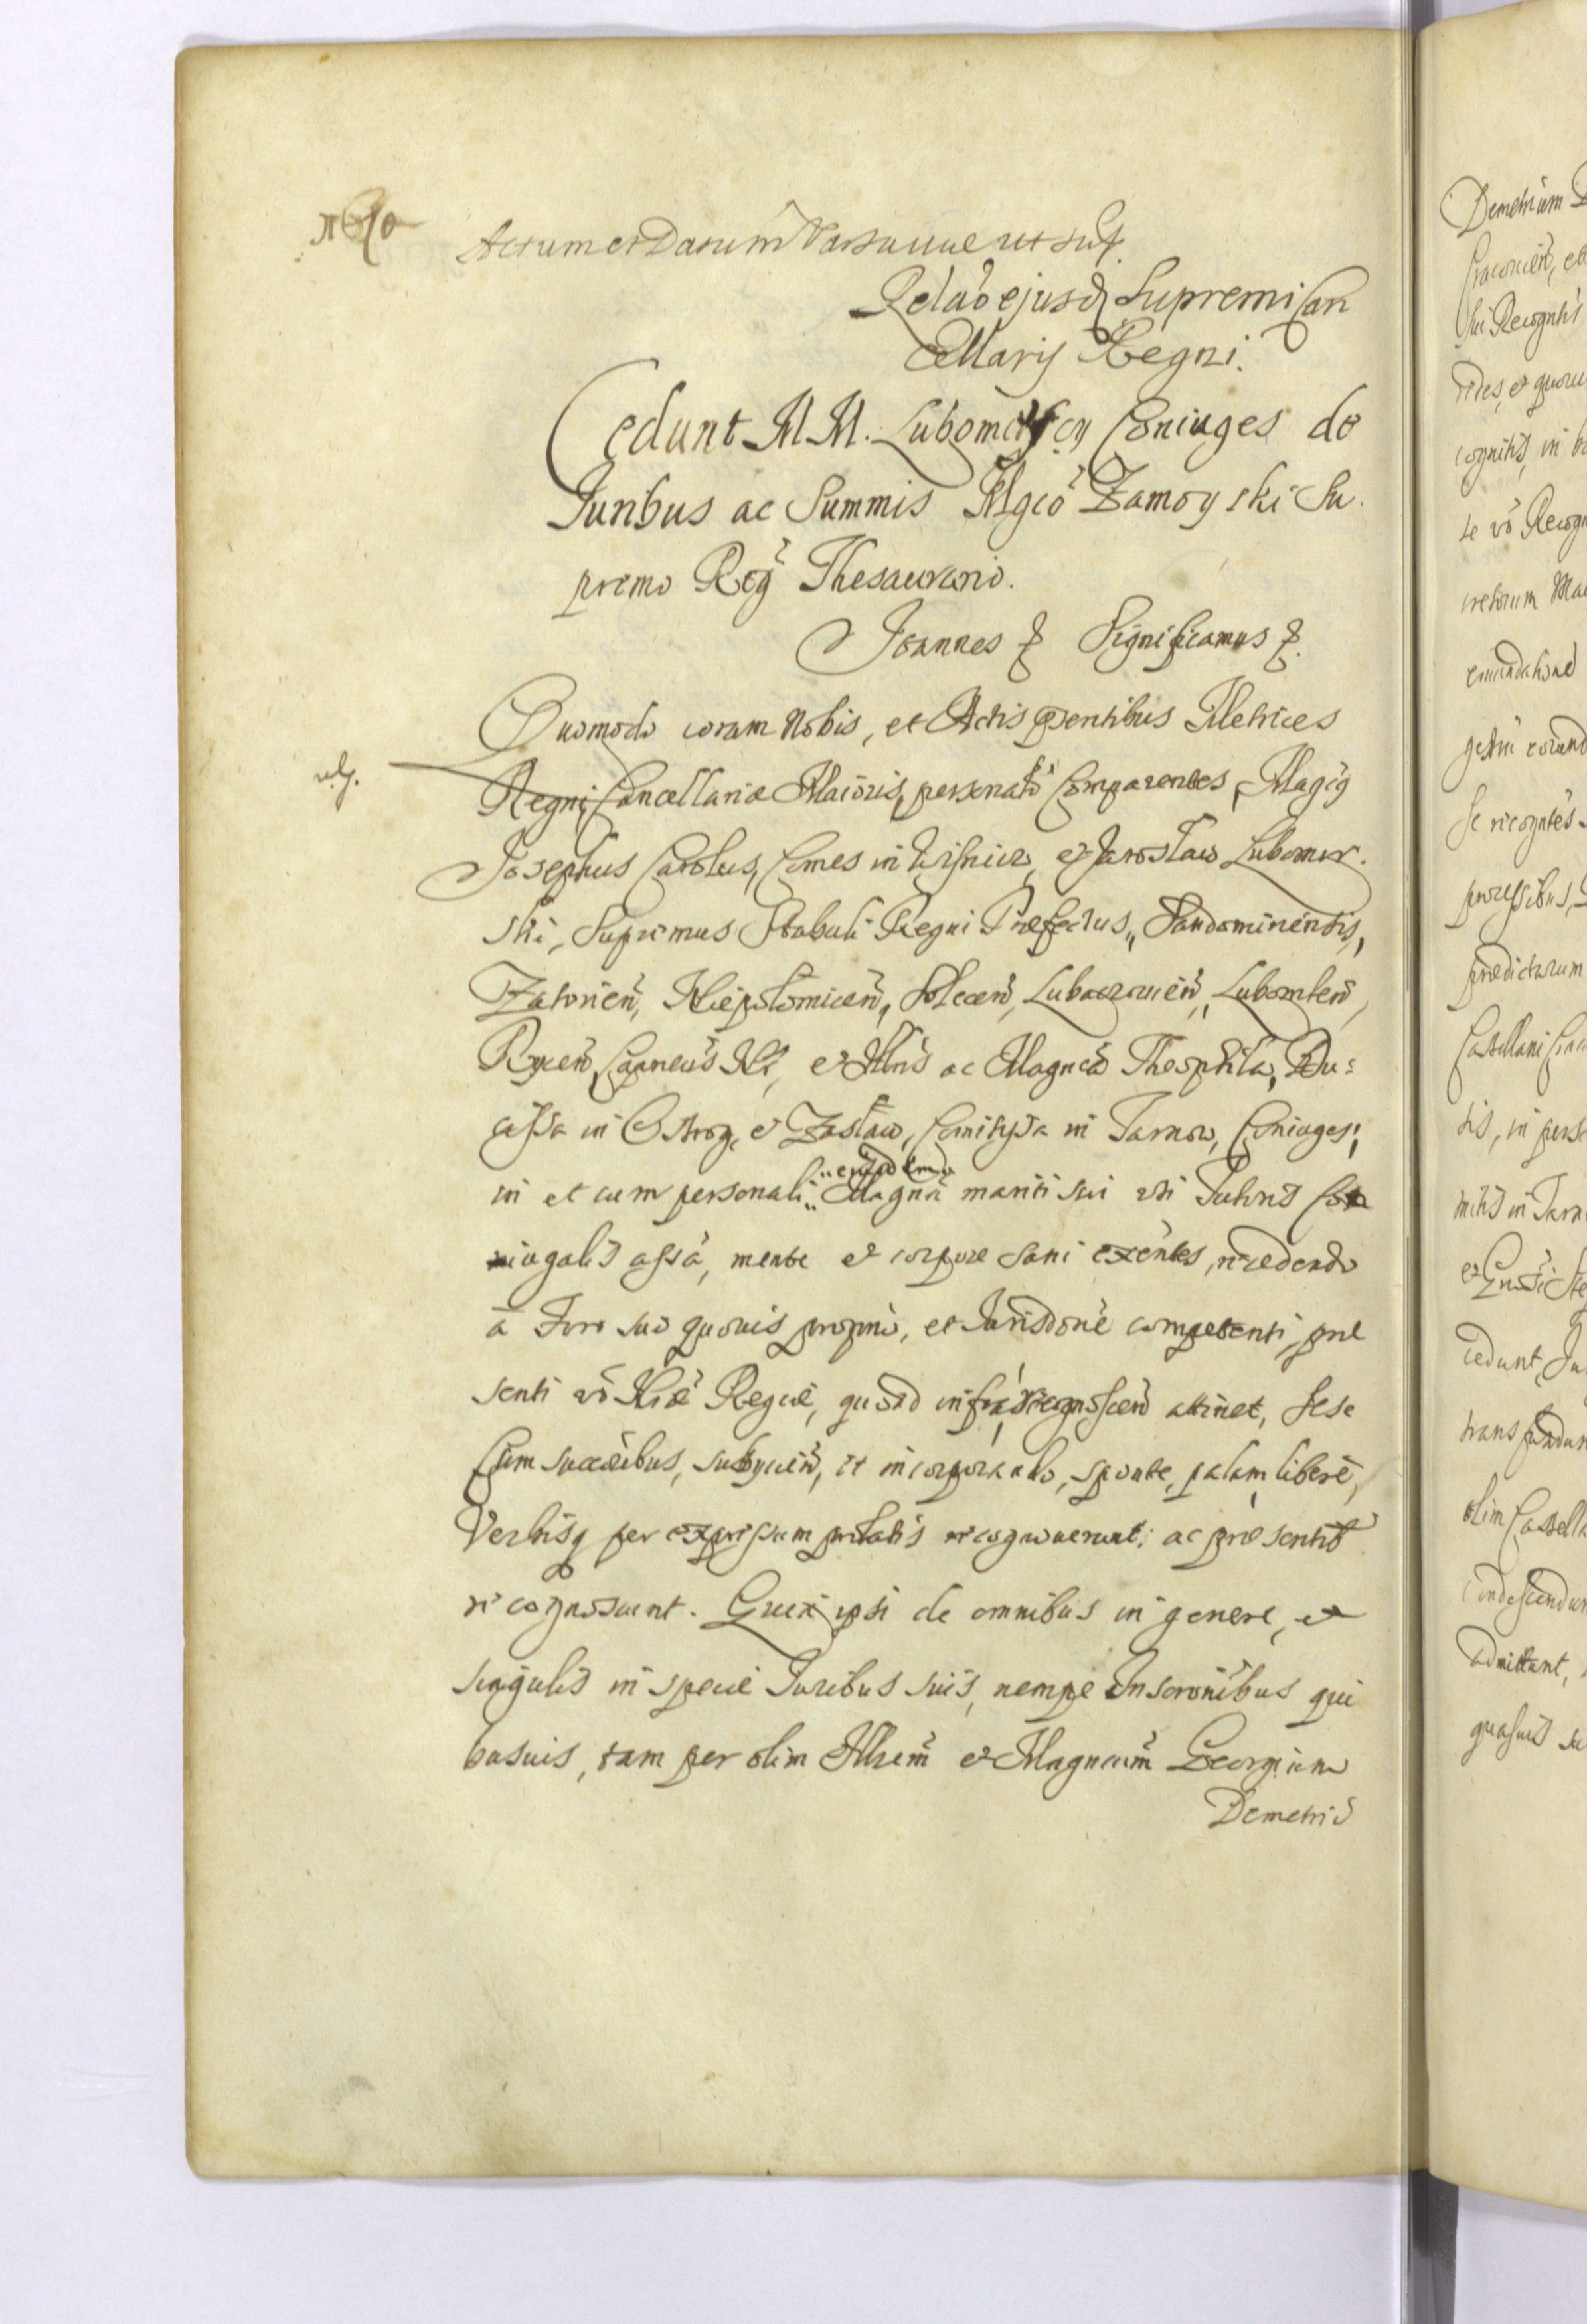 Actum et Datum Varsaviae ut sup.
Relao ejusd Supremi Can
cellarij Regni.
Cedunt M M. Lubomirscy Coniuges de
Iuribus ac Summis Mgco Zamoyski Su
premo Reg Thesaurario.
Joannes Significamus
Quomodo coram Nobis, et Actis pentibus Metrices
vig.
Regni Cancellariae Maioris, personalr Comparentes, Magcg
Josephus Carolus, Comes in Wisnicz, et Jaroslaw Lubomir.
ski, Supremus Stabuli Regni Praefectus, Sandomiriensis,
Zatorien, Niepolomicen, Solecen, Lubaczovien, Lubomlen,
Rycen, Capneus Nr, et Illris ac Magnca Theophila, Du=
cissa in Ostrog, et Zaslaw, Comitissa in Tarnow, Coniuges,
eiusdem
in et cum personali Magnci mariti sui uti Tutoris Con
iugalis assa, mente et corpore sani exentes, recedendo
à Foro suo quovis proprio, et Iurisdone competenti, prae
senti vo Nrae Regiae, quoad infra recognoscen attinet, sese
Cum succoribus, subycien, et incorporando, sponte, palam, liberè,
Verbisq per expressum prolatis recognoverunt; ac praesentib
recognoscunt. Quia ipsi de omnibus in genere, et
singulis in specie Iuribus suis, nempe Inscronibus qui
busvis, tam per olim Illrem et Magncum Georgium
Demetriu
Demetrium
Cracovien, et
sui Recogntis
cognitis, in
te vo Recogn
emendatione
Se recogntes
praedictarum
Castellani Crac
tis, in pers
mitis in Tarn
cedunt, Iu
transfundun
olim Castella
condescendun
admittunt,